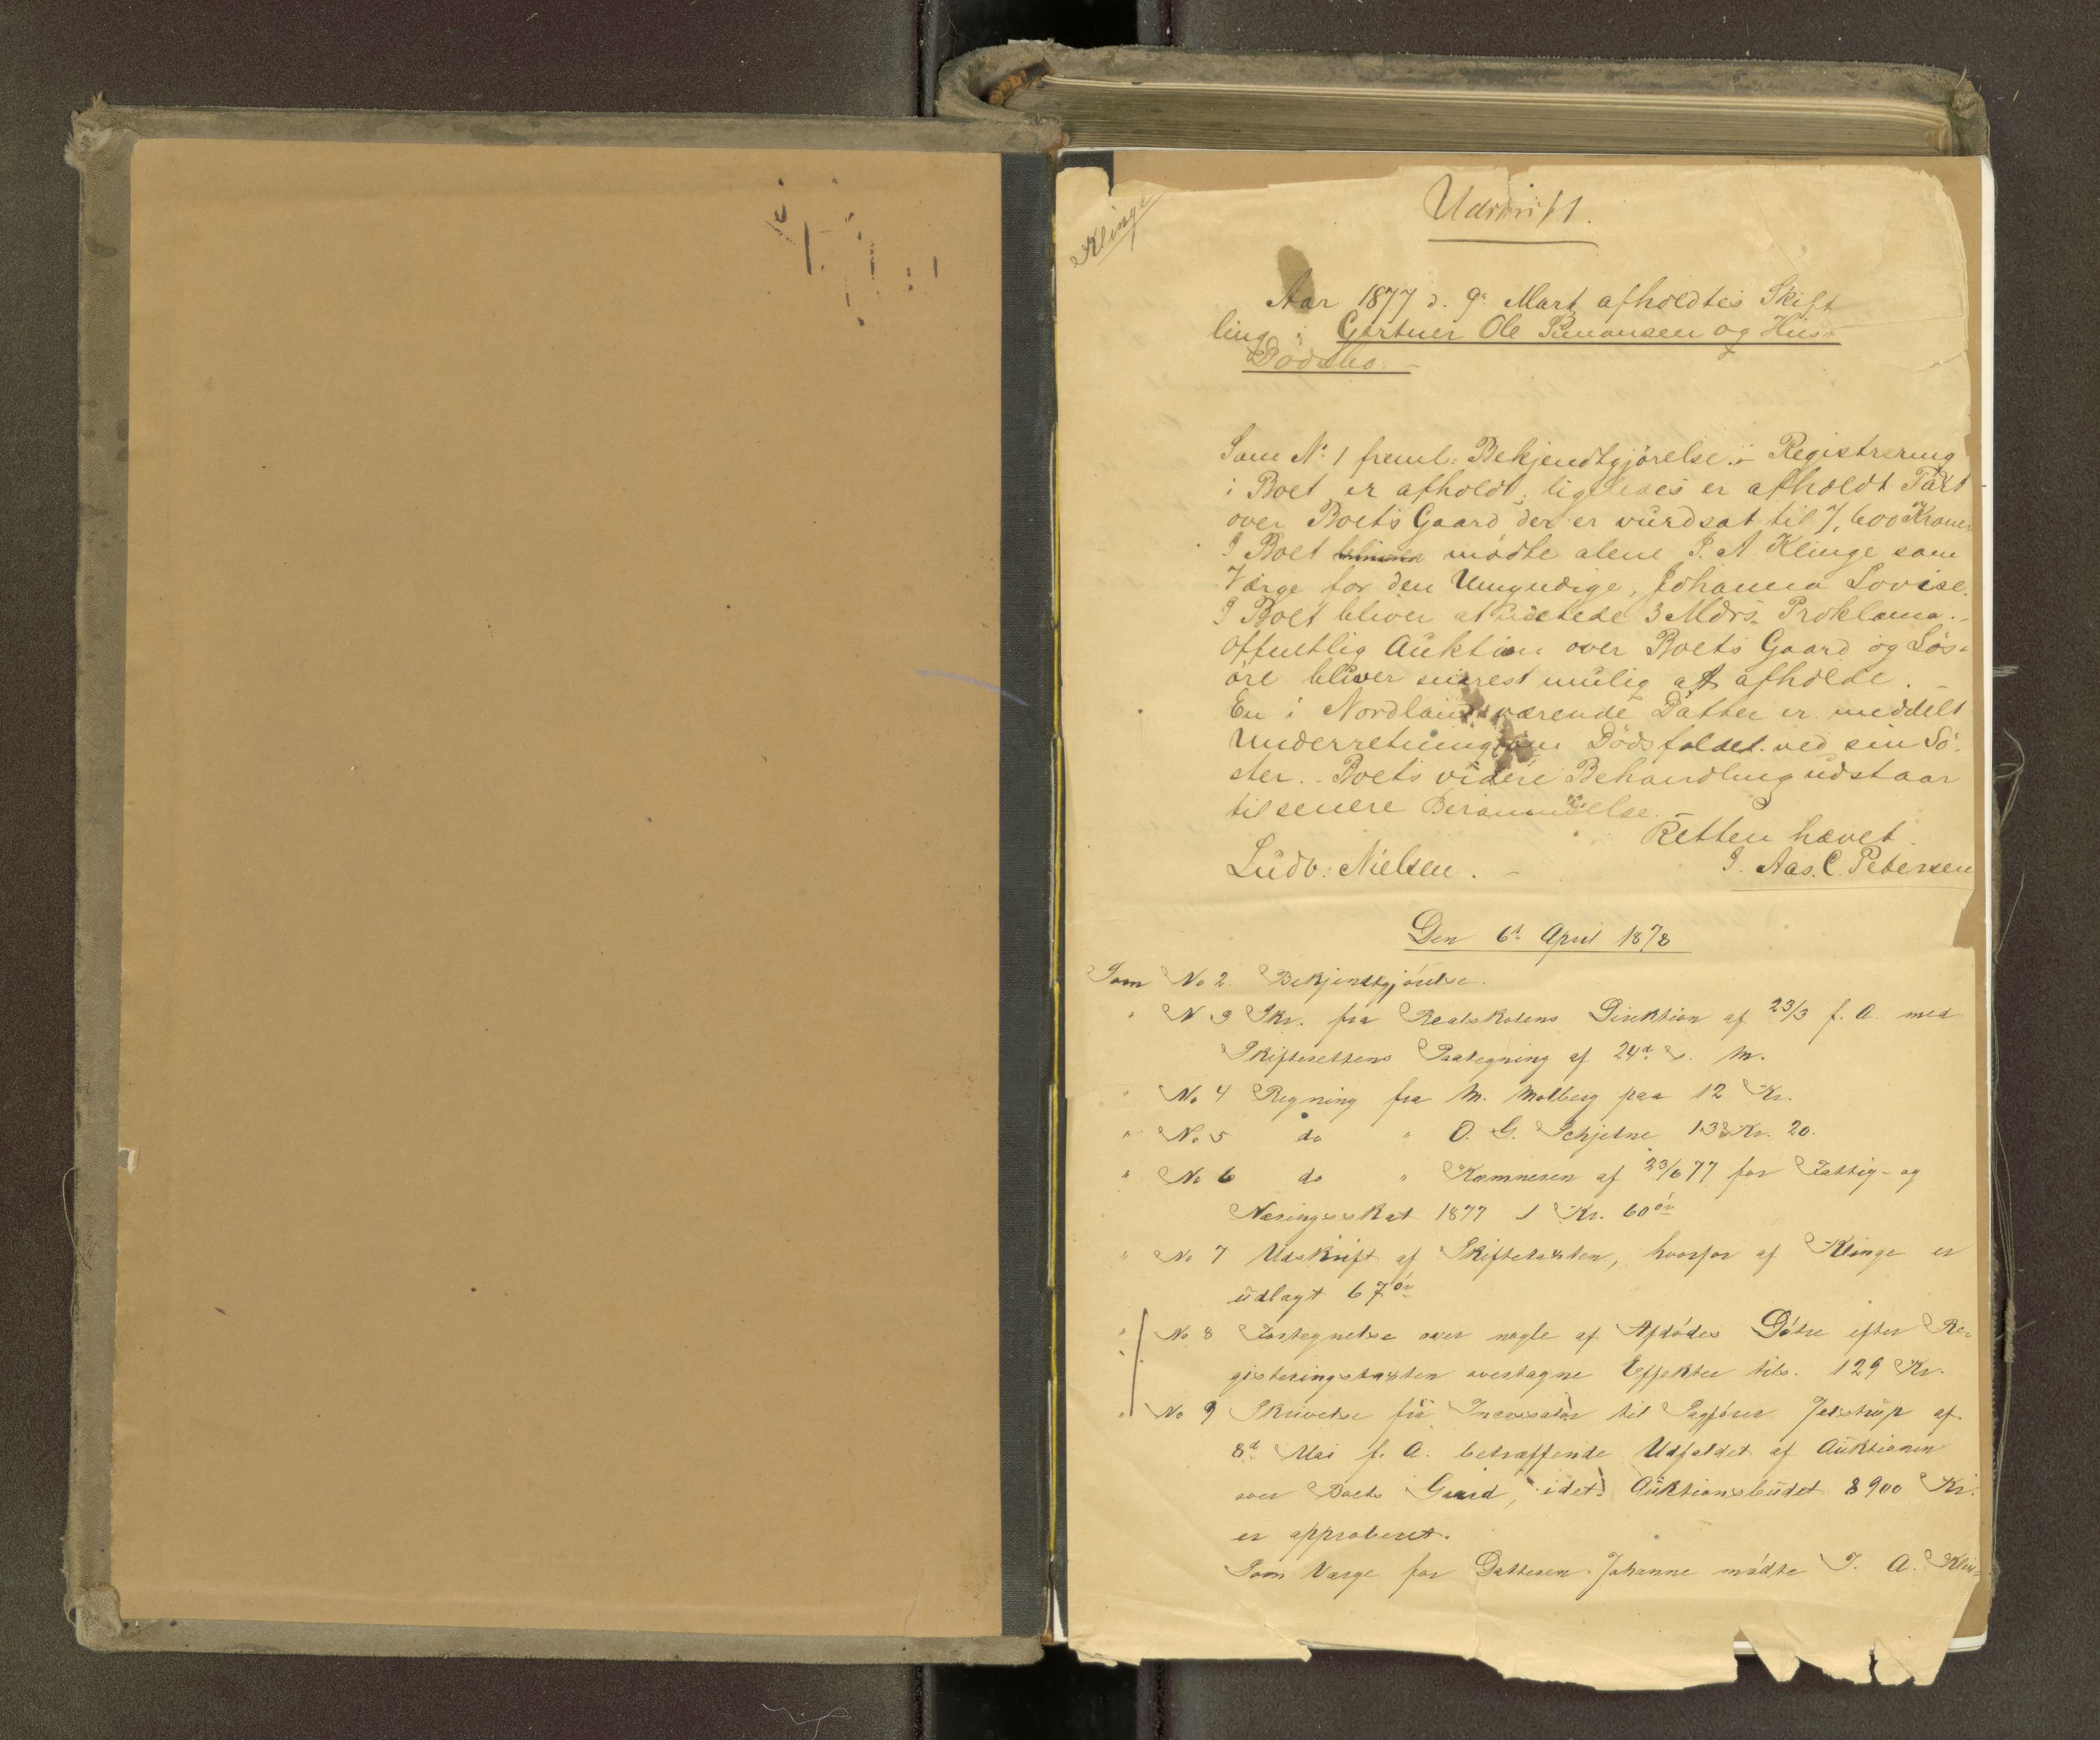 Klinge
Udskrift.
Aar 1877 d. 9de Mart afholdtes Skift
ling i Gartner Ole Simonsen og Hus-
Dødsbo. -
Som No 1 freml: Bekjendtgjörelse. - Registrering
i Boet er afholdt; ligeledes er afholdt Taxt
over Boets Gaard der er vurdsat til 7,600 Kroner
I Boet mödte alene J. A. Klinge som
Værge for den Umyndige, Johanna Lovise.
I Boet bliver at udstede 3 Mdrs. Proklama. -
Offentlig Auktion over Boets Gaard og Lös-
öre bliver snarest mulig at afholde. -
En i Nordland værende Datter er meddelt
Underretning om Dödsfaldet ved sin Sö-
ster. - Boets videre Behandling udstaar
til senere Berammelse. -
Retten hævet.
Ludv: Nielsen. - J. Aas. C. Petersen
Den 6d April 1878
Som No 2. Bekjendtgjörelse.
" N 3 Skr. fra Realskolens Direktion af 23/3 f. A. med
Skifterettens Paategning af 24d s. M.
" No 4 Regning fra M. Molberg paa 12 Kr.
" No 5 do " O. G. Schjelne 138 Kr. 20.
" No 6 do " Kæmneren af 23/6 77 for Fattig- og
Næringsskat 1877 1 Kr. 60 ör
" No 7 Udskrift af Skiftetaxten, hvorfor af Klinge er
udlagt 67 ör
" No 8 Fortegnelse over nogle af Afdödes Dötre efter Re-
gisteringstaxten overtagne Effekter tils. 129 Kr.
" No 9 Skrivelse fra Incassator til Sagförer Jelstrup af
8d Mai f. A. betræffende Udfaldet af Auktionen
over Boets Gaard, idet Auktionsbudet 8900 Kr.
er approberet.
Som Værge for Datteren Johanne mödte J. A. Klin-